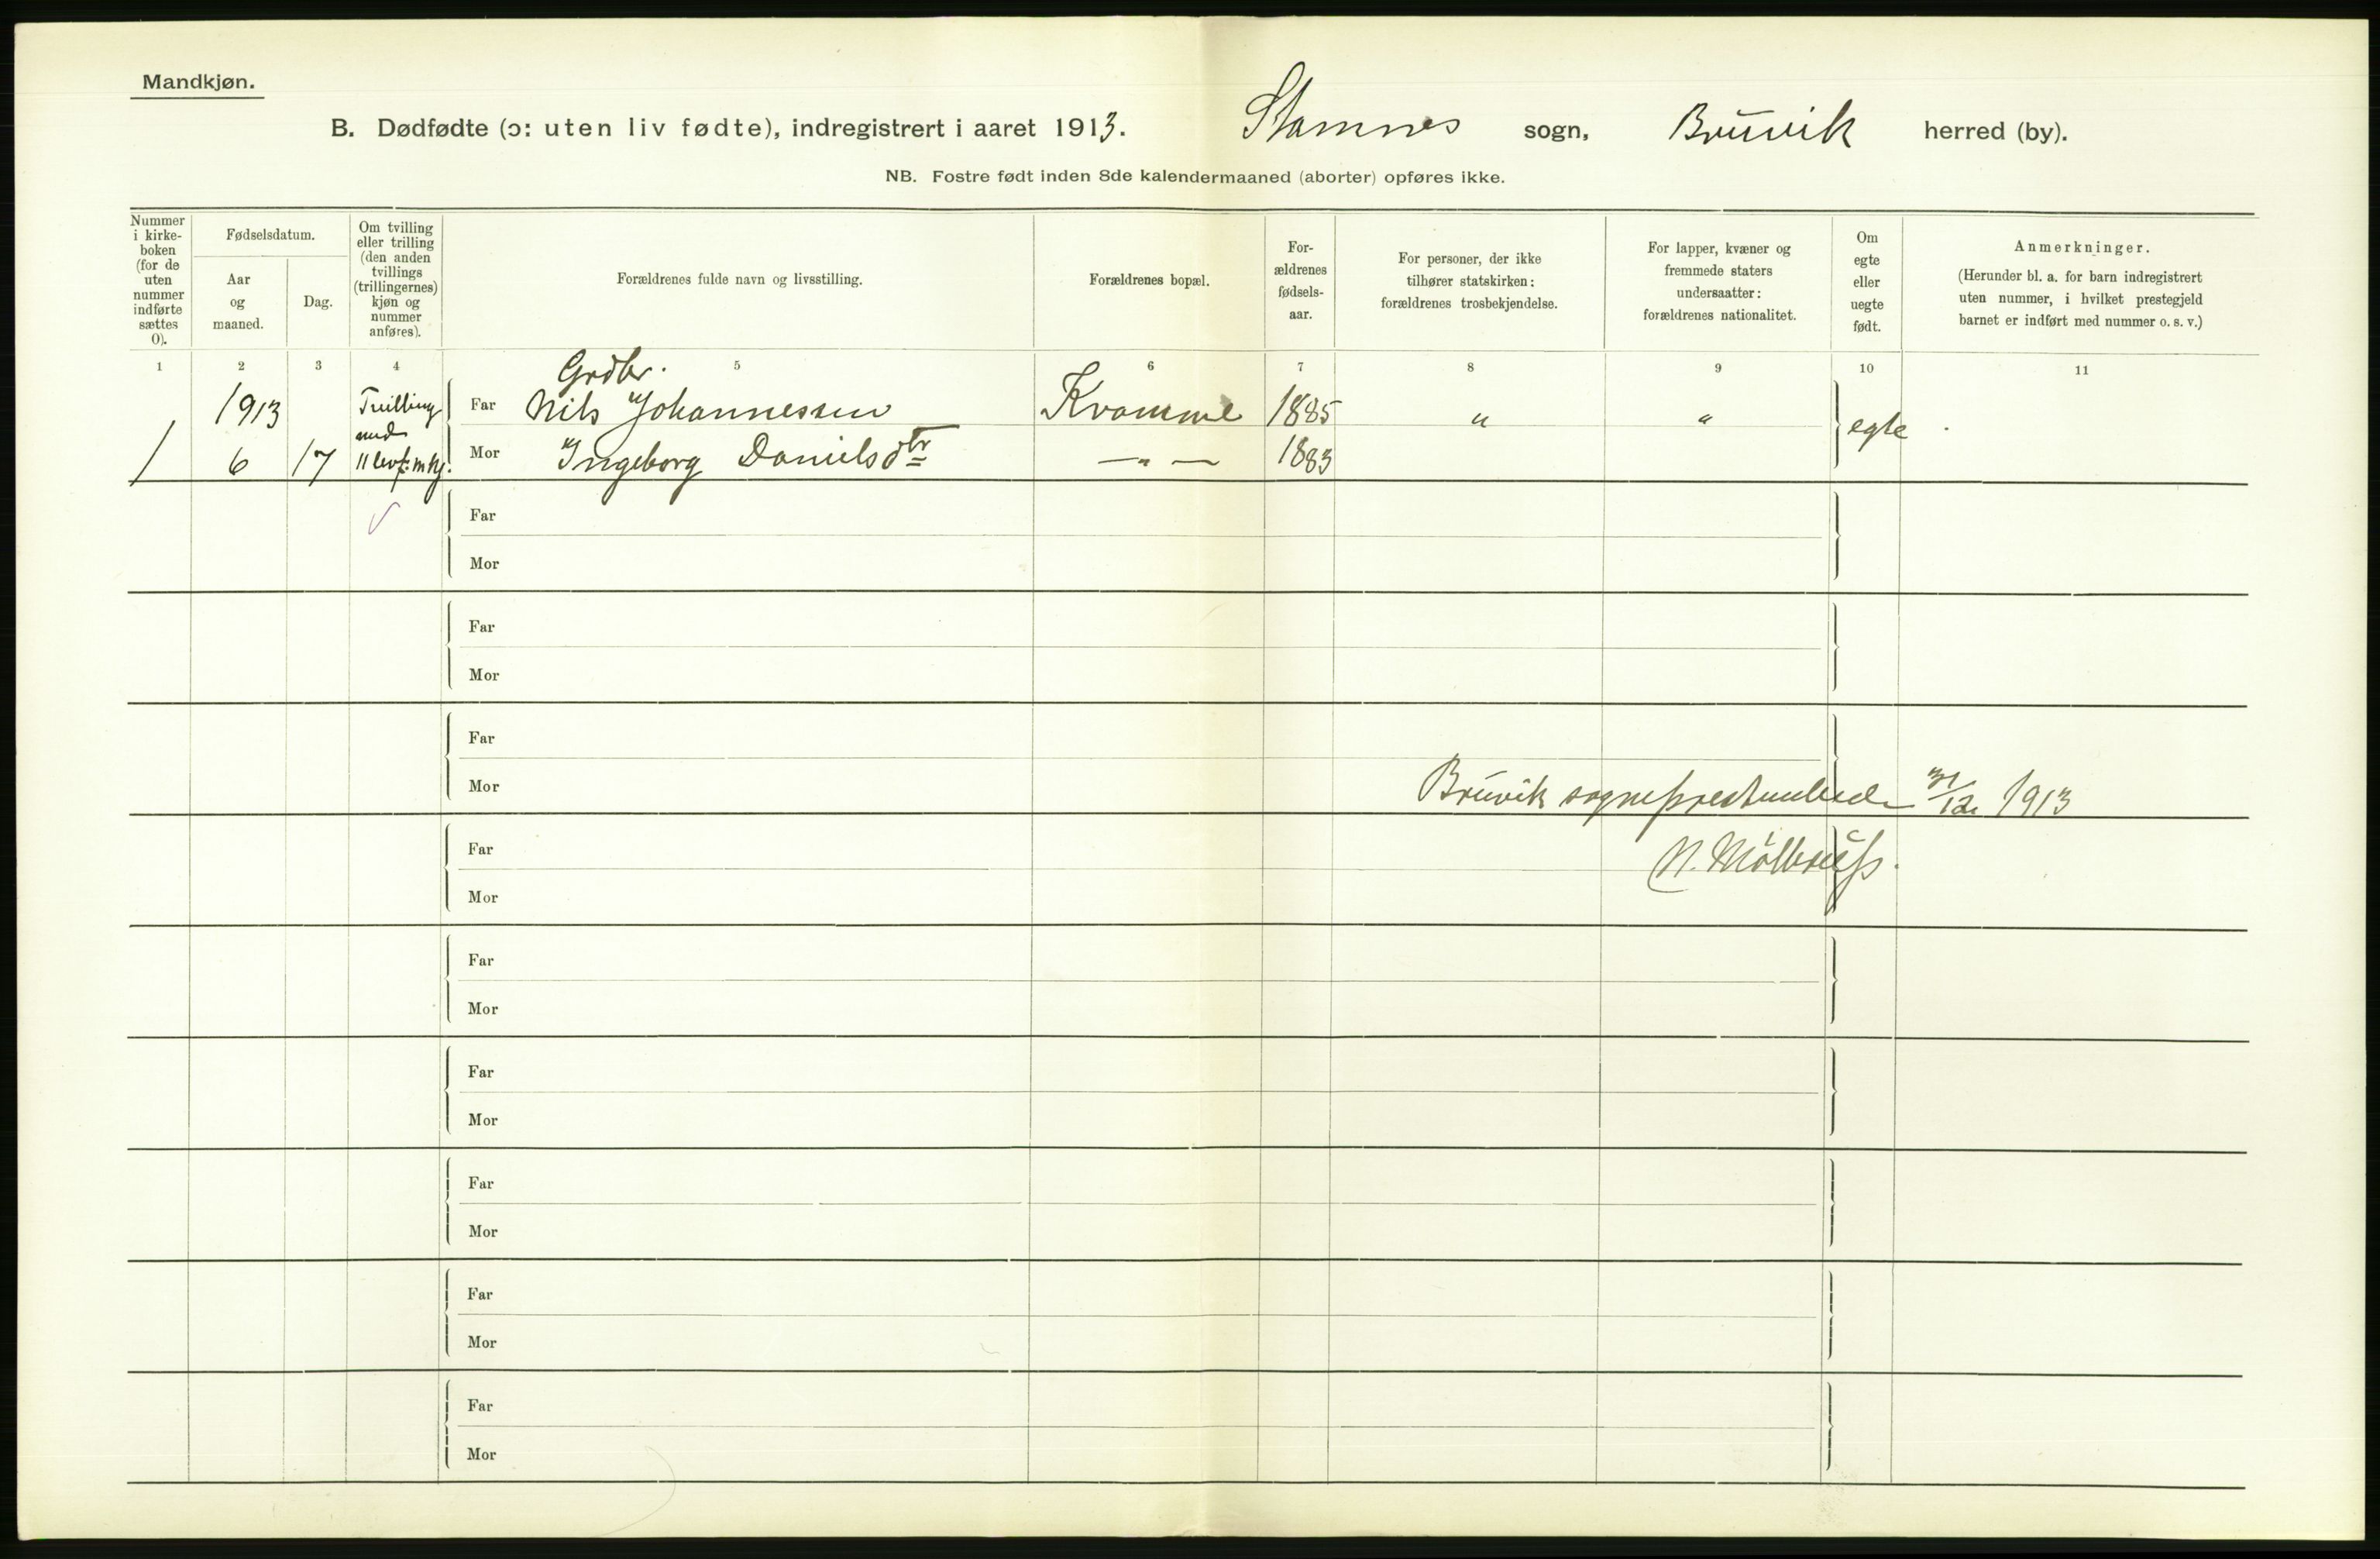 Mandkjøn.
B. Dødfødte (ɔ: uten liv fødte), indregistrert i aaret 1913. Stamnes sogn, Bruvik herred (by).
NB. Fostre født inden 8de kalendermaaned (aborter) opføres ikke.
Nummer
i kirke-
boken
(for de
uten
nummer
indførte
sættes
0).
Fødselsdatum.
Aar
og
maaned.
Dag.
Om tvilling
eller trilling
(den anden
tvillings
(trillingernes)
kjøn og
nummer
anføres).
Forældrenes fulde navn og livsstilling.
Forældrenes bopæl.
For-
ældrenes
fødsels-
aar.
For personer, der ikke
tilhører statskirken:
forældrenes trosbekjendelse.
For lapper, kvæner og
fremmede staters
undersaatter:
forældrenes nationalitet.
Om
egte
eller
uegte
født.
Anmerkninger.
(Herunder bl. a. for barn indregistrert
uten nummer, i hvilket prestegjeld
barnet er indført med nummer o. s. v.)
1 2 3 4 5 6 7 8 9 10 11
Grdbr.
1913 Tvilling Far Nils Johannessen Kvamme 1885 " " egte
med
1 6 17 11 levf. mkj. Mor Ingeborg Danielsdtr — " — 1883
Far
Mor
Far
Mor
Far
Mor Bruvik sogneprestembede 31/12 1913
Far
Mor
Far
Mor
Far
Mor
Far
Mor
Far
Mor
Far
Mor